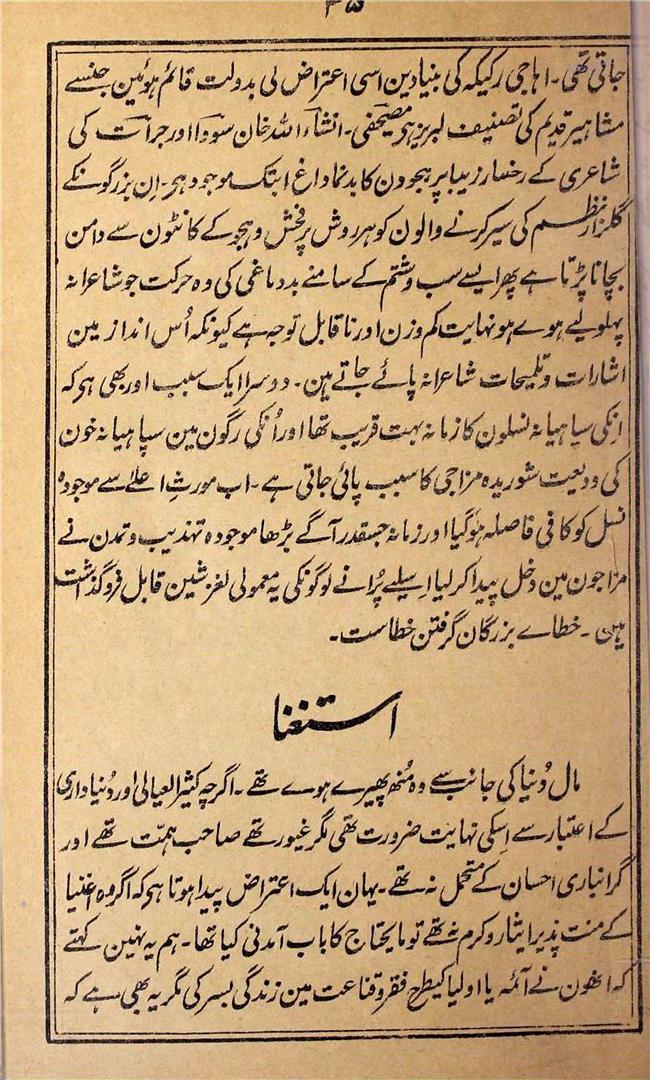 ۳۵
جاتی تھی۔ اہاجی رکیکہ کی بنیادین اسی اعتراض کی بدولت قائم ہوئین جنسے
مشاہیر قدیم کی تصنیف لبریز ہی مصحفی۔ انشاءاللہ خان سودا اور جرأت کی
شاعری کے رخسار زیبا پر ہجودن کا بدنما داغ ابتک موجود ہی۔ اِن بزرگونکے
گلزار نظم کی سیر کرنے والون کو ہر روش پر فحش و ہجو کے کانٹون سے دامن
بچانا پڑتا ہے پھر ایسے سب و شتم کے سامنے بددماغی کی وہ حرکت جو شاعرانہ
پہلو لیے ہوے ہو نہایت کم وزن اور ناقابل توجہ ہے کیونکہ اُس انداز مین
اشارات و تلمیحات شاعرانہ پائے جاتے ہین۔ دوسرا ایک سبب اور بھی ہی کہ
انکی سپاہیانہ نسلون کا زمانہ بہت قریب تھا اور اُنکی رگون مین سپاہیانہ خون
کی ودیعت شوریدہ مزاجی کا سبب پائی جاتی ہے۔ اب مورثِ اعلےٰ سے موجودہ
نسل کو کافی فاصلہ ہو گیا اور زمانہ جسقدر آگے بڑھا موجودہ تہذیب و تمدن نے
مزاجون مین دخل پیدا کر لیا اِسلیے پُرانے لوگونکی یہ معمولی لغزشین قابل فروگذاشت
ہین۔ خطاے بزرگان گرفتن خطاست۔
استغنا
مال دُنیا کی جانب سے وہ مُنھ پھیرے ہوے تھے۔ اگرچہ کثیر العیالی اور دُنیاداری
کے اعتبار سے اِسکی نہایت ضرورت تھی مگر غیور تھے صاحب ہمّت تھے اور
گرانباری احسان کے متحمل نہ تھے۔ یہان ایک اعتراض پیدا ہوتا ہی کہ اگر وہ اغنیا
کے منت پذیر ایثار و کرم نہ تھے تو مایحتاج کا باب آمدنی کیا تھا۔ ہم یہ نہین کہتے
کہ انھون نے آئمہ یا اولیا کیطرح فقر و قناعت مین زندگی بسر کی مگر یہ بھی ہے کہ